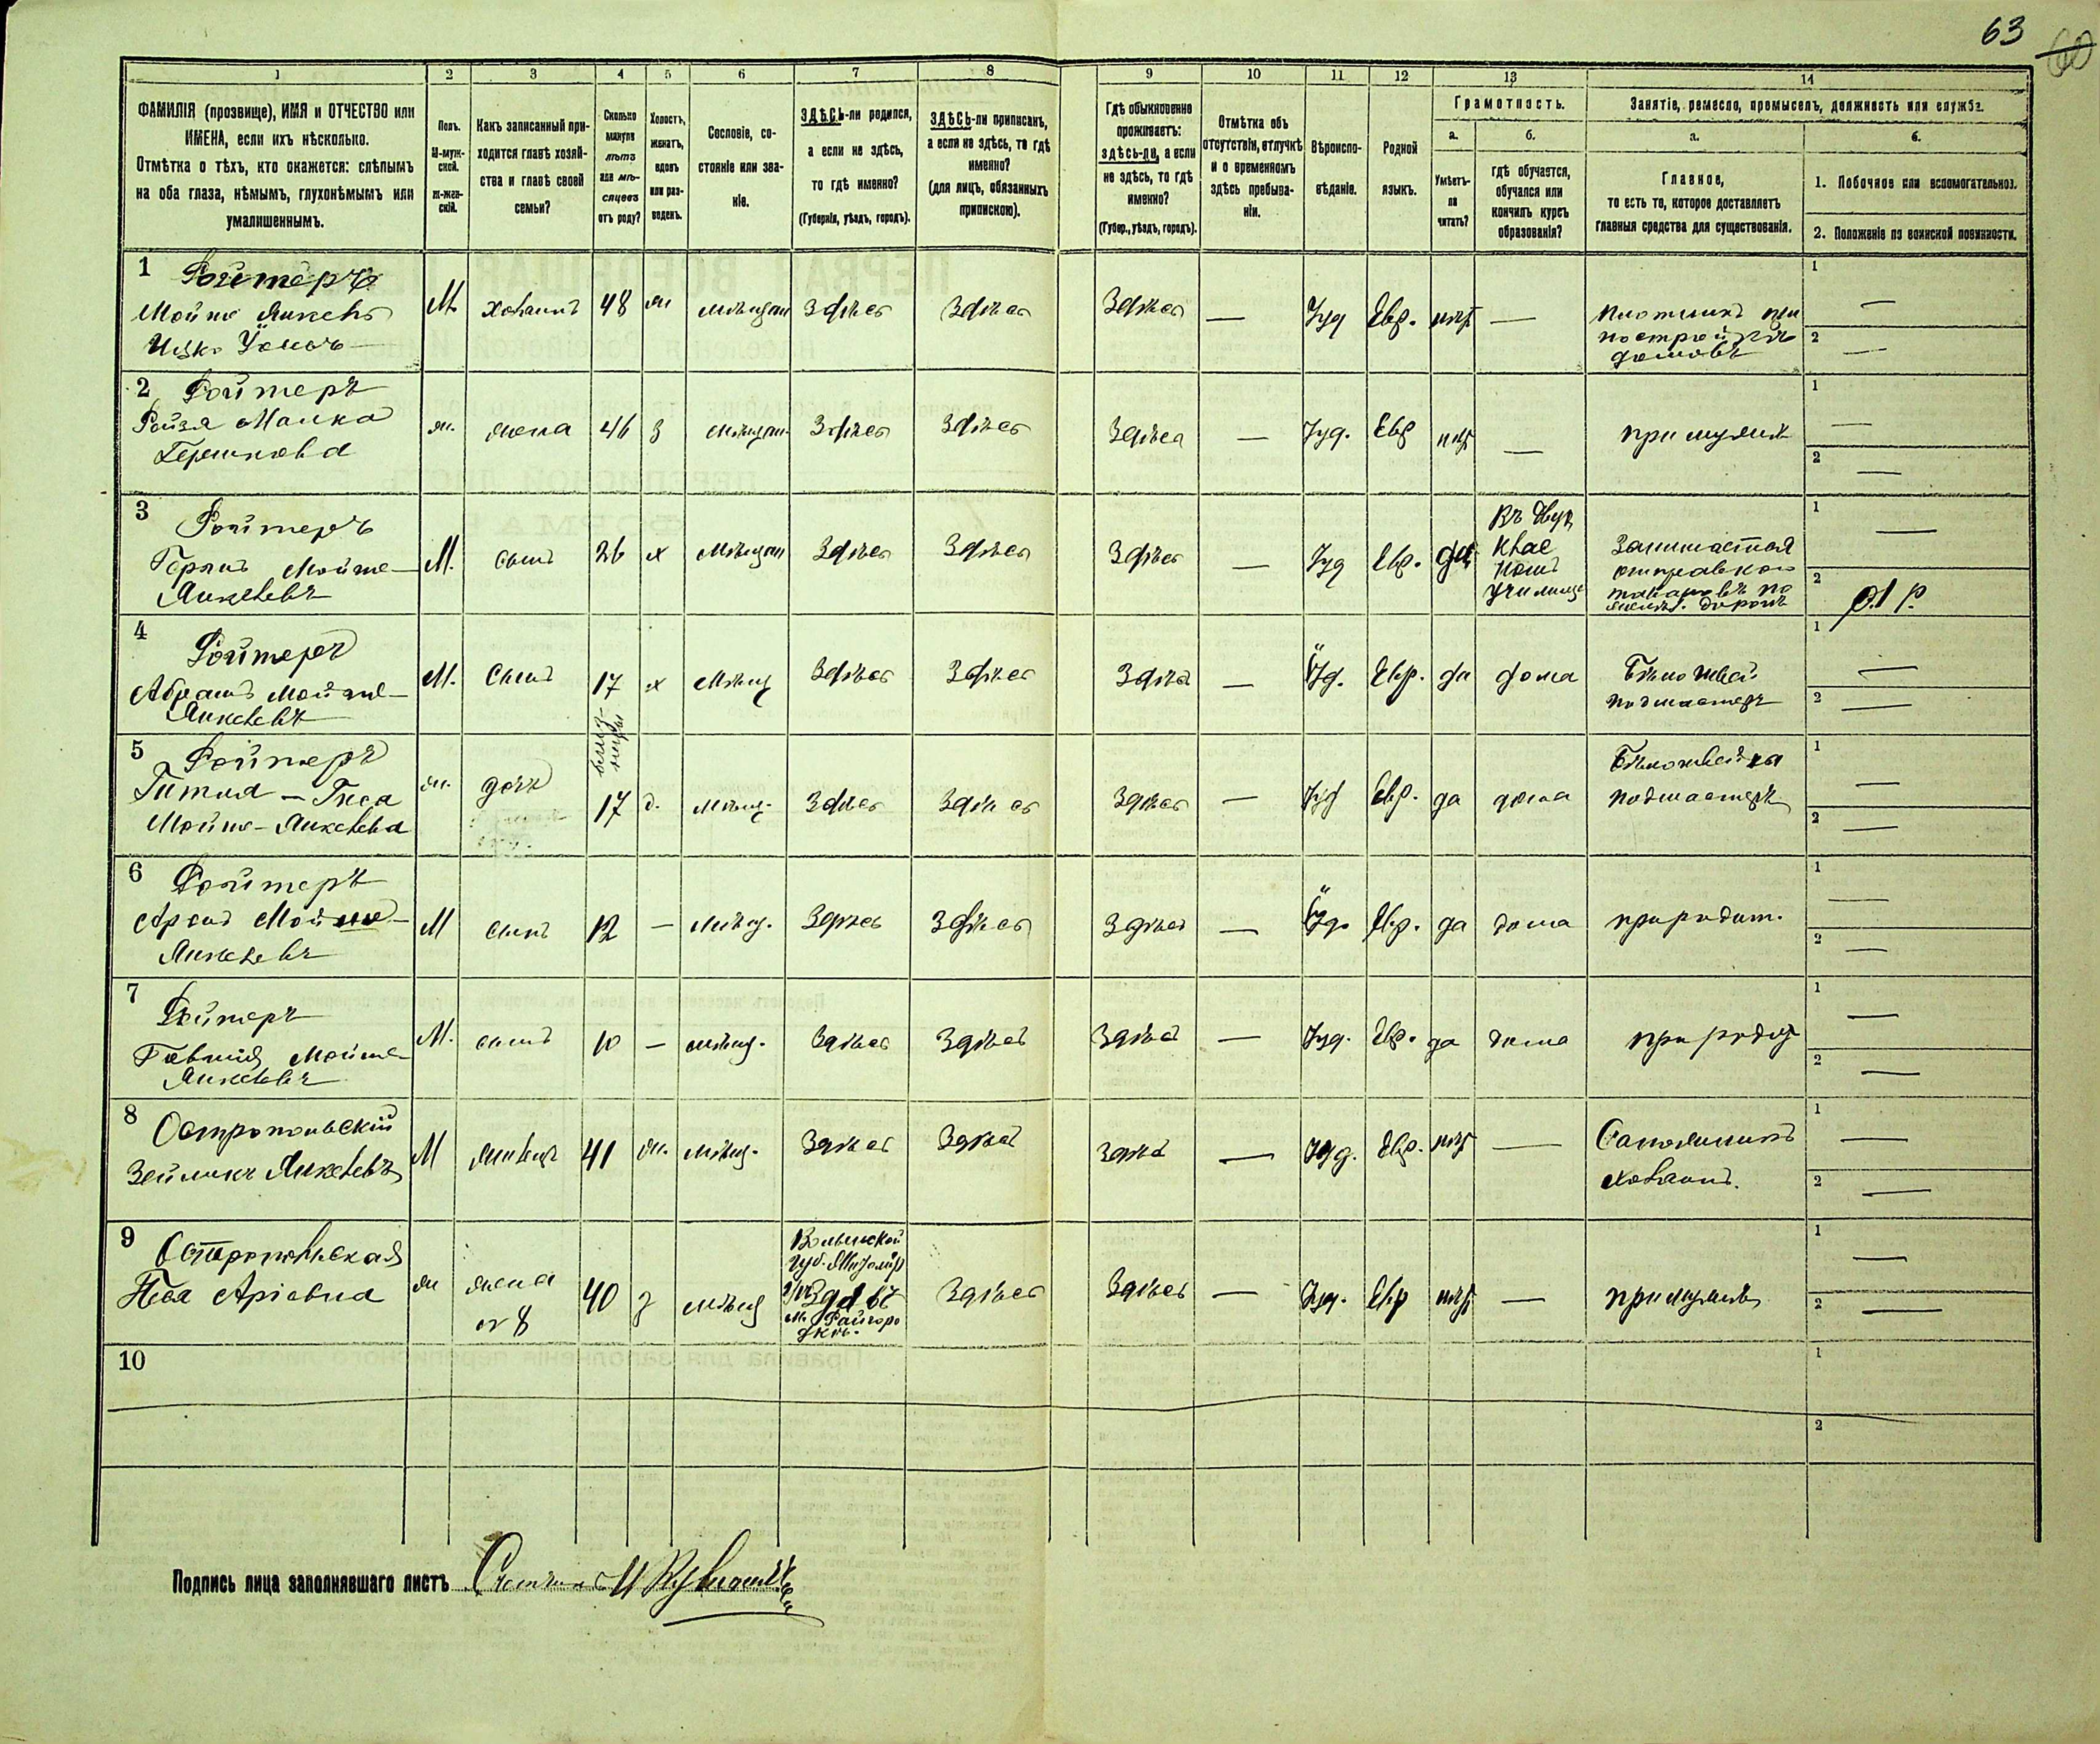 63
60
1
2
3
4
5
6
7
8
9
10
11
12
13
14
ФАМИЛІЯ (прозвище), ИМЯ и ОТЧЕСТВО или
ИМЕНА, если ихъ нѣсколько.
Отмѣтка о тѣхъ, кто окажется: слѣпымъ
на оба глаза, нѣмымъ, глухонѣмымъ или
умалишеннымъ.
Полъ.
М-муж-
ской.
ж-жен-
скій.
Какъ записанный при-
ходится главѣ хозяй-
ства и главѣ своей
семьи?
Сколько
минуло
лѣтъ
или мѣ-
сяцевъ
отъ роду?
Холостъ,
женатъ,
вдовъ
или раз-
веденъ.
Сословіе, со-
стояніе или зва-
ніе.
ЗДѢСЬ-ли родился,
а если не здѣсь,
то гдѣ именно?
(Губернія, уѣздъ, городъ).
ЗДѢСЬ-ли приписанъ,
а если не здѣсь, то гдѣ
именно?
(для лицъ, обязанныхъ
припискою).
Гдѣ обыкновенно
проживаетъ:
здѣсь-ли, а если
не здѣсь, то гдѣ
именно?
(Губер., уѣздъ, городъ).
Отмѣтка объ
отсутствіи, отлучкѣ
и о временномъ
здѣсь пребыва-
ніи.
Вѣроиспо-
вѣданіе.
Родной
языкъ.
Грамотность.
а.
б.
Умѣетъ-
ли
читать?
гдѣ обучается,
обучался или
кончилъ курсъ
образованія?
Занятіе, ремесло, промыселъ, должность или служба.
а.
б.
Главное,
то есть то, которое доставляетъ
главныя средства для существованія.
1. Побочное или вспомогательное.
2. Положеніе по воинской повинности.
1 Ройтеръ
Мойше Янкель
М. хозяинъ 48 ж мѣщан здѣсь здѣсь здѣсь — Іуд Евр. нѣт — плотникъ при
постройкѣ
домовъ
1 —
2 —
2 Ройтеръ
Ройзя Малка
Гершкова
ж. жена 46 з мѣщан. здѣсь здѣсь здѣсь — Іуд. Евр нѣт — при мужѣ
1 —
2 —
3 Ройтеръ
Мойше-
Янкелевъ
М. сынъ 26 х мѣщан здѣсь здѣсь здѣсь — Іуд Евр. да
училищѣ
Занимается
отправкою
товаровъ по
желѣз. дорогѣ
1 —
2
4 Ройтеръ
Абрамъ Мойше-
Янкелевъ
М. сынъ 17 х мѣщ здѣсь здѣсь здѣсь — Іуд. Евр. да дома Бѣлошвей
подмастер
1 —
2 —
близ-
нецы
5 Ройтеръ
Гитля-
Мойше-Янкелева
ж. дочь 17 д. мѣщ. здѣсь здѣсь здѣсь — Іуд Евр. да дома Бѣлошвейка
подмастер
1 —
2 —
6 Ройтеръ
Аронъ Мойше-
Янкелевъ
М сынъ 12 — мѣщ. здѣсь здѣсь здѣсь — Іуд. Евр. да дома при родит.
1 —
2 —
7 Ройтеръ
Мойше-
Янкелевъ
М. сынъ 10 — мѣщ. здѣсь здѣсь здѣсь — Іуд. Евр. да дома при родит
1 —
2 —
8 Остропольскій
Зейликъ Янкелевъ
М жилецъ 41 ж. мѣщ. здѣсь здѣсь здѣсь — Іуд. Евр. нѣт — Сапожникъ
хозяинъ.
1 —
2 —
9 Остропольская
Песя Аріевна
ж жена
от 8
40 з мѣщ
Волынской
губ. Житомір
м. Райгоро
докъ.
здѣсь здѣсь — Іуд. Евр нѣт — при мужѣ
1 —
2 —
10
1
2
Подпись лица заполнявшаго листъ Счетчикъ